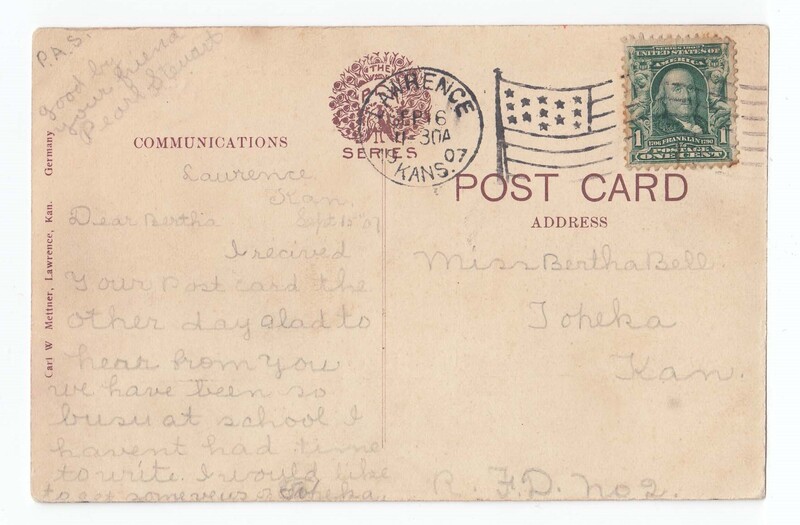 P.A.S.
good by
your friend
Pearl Stewart
THE
SERIES
COMMUNICATIONS
Carl W Mettner, Lawrence, Kan. Germany
Lawrence
Kan.
Sept 15 '07
Dear Bertha
I recived
Your Post card the
other day glad to
hear from You
we have been so
busy at school I
havent had time
to write. I would like
to get some veus of Topeka.
LAWRENCE
SEP 16
30A
07
KANS.
SERIES 1902
UNITED STATES OF
AMERICA
1706 FRANKLIN 1790
1 POSTAGE 1
ONE CENT
POST CARD
ADDRESS
Miss Bertha Bell.
Topeka
Kan.
R.F.D. No 2.